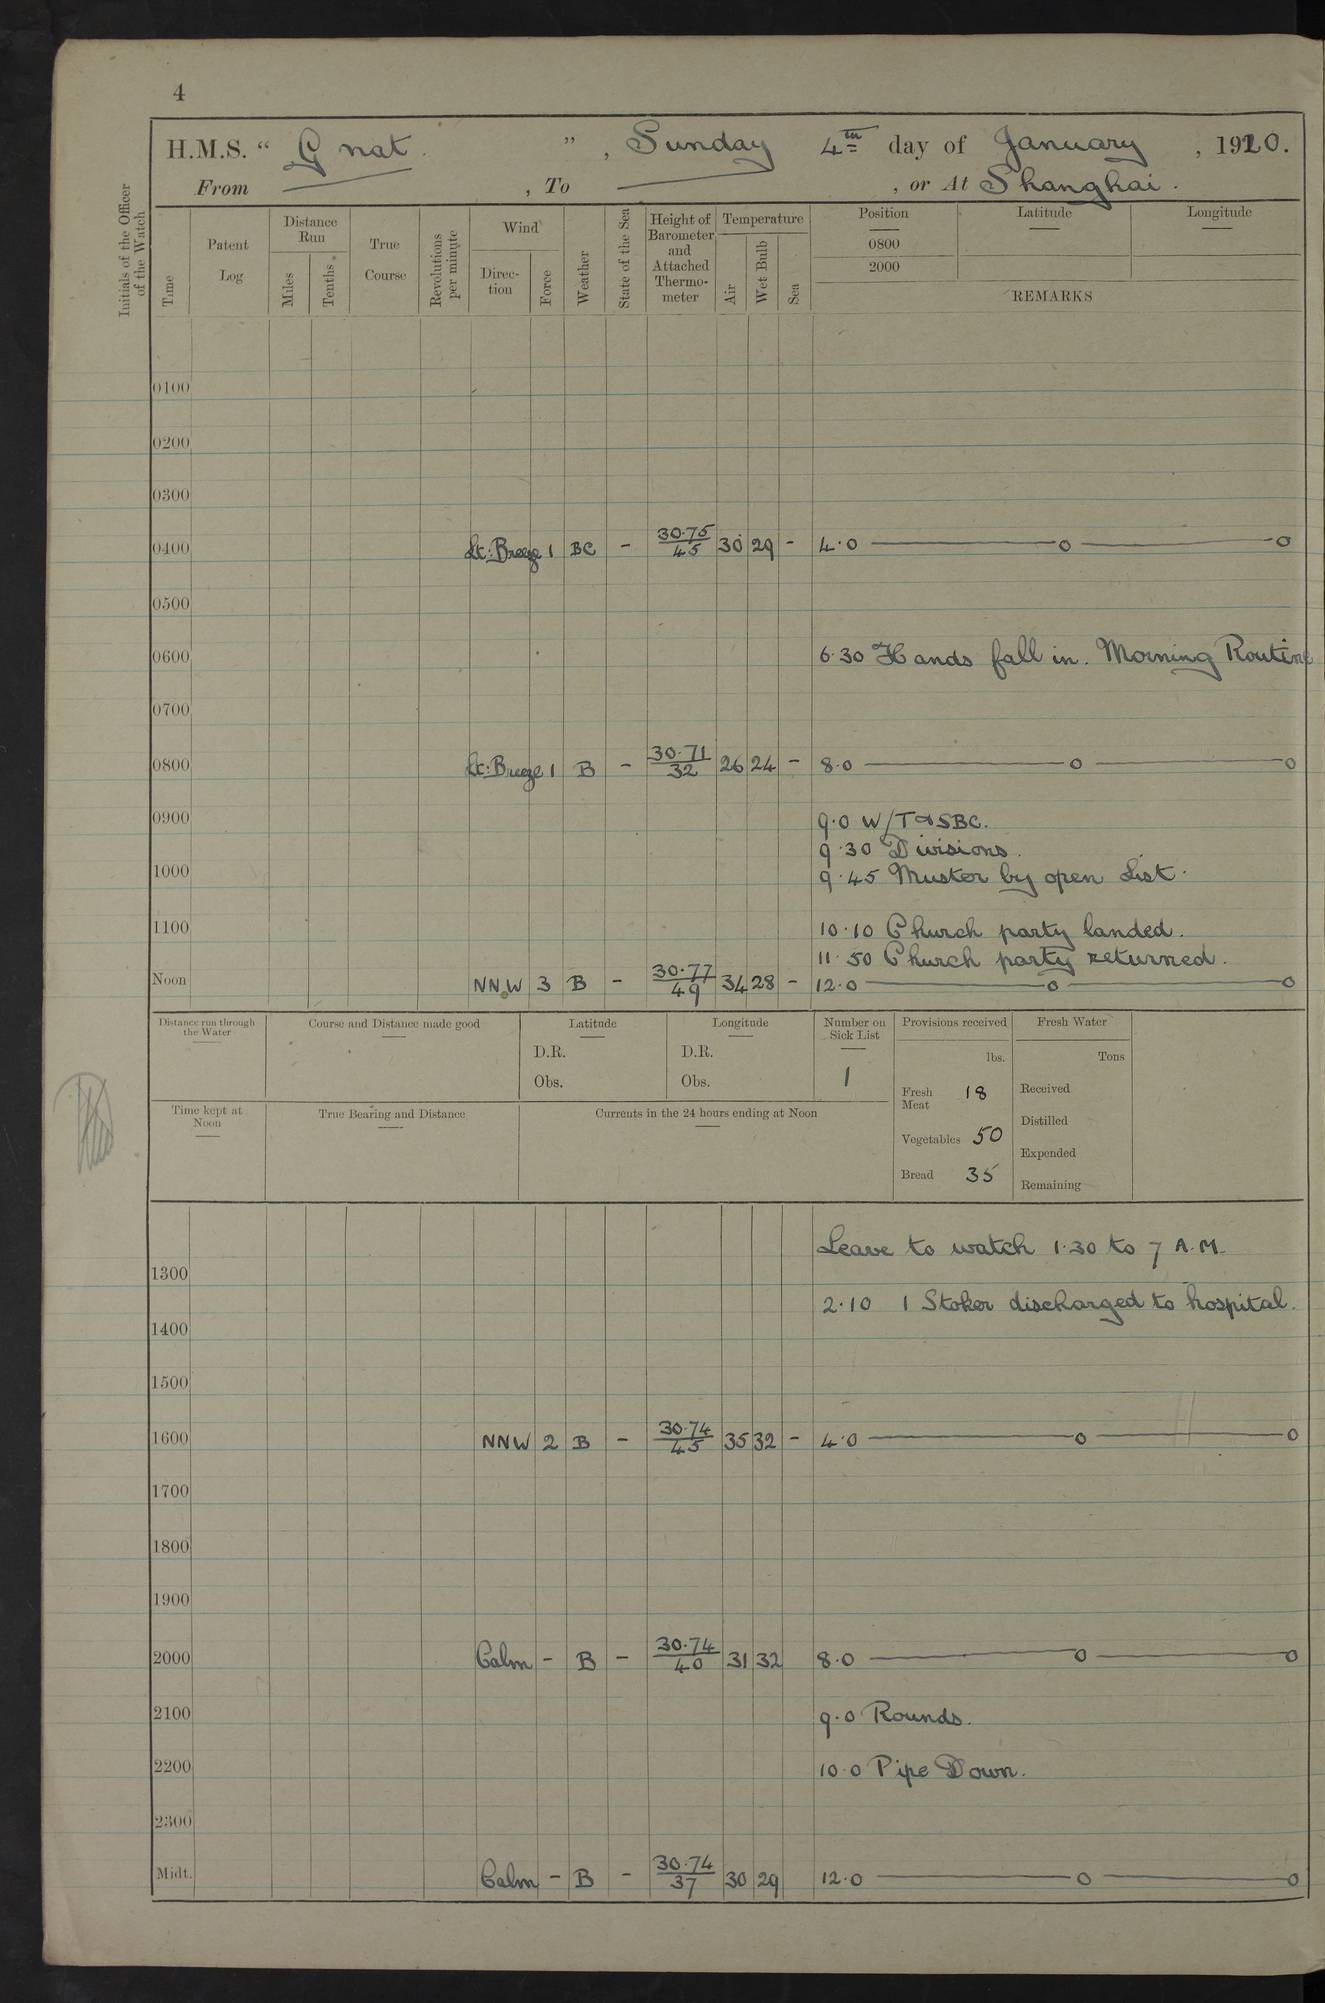 4
H.M.S. “ Gnat. ” , Sunday 4th day of January , 1920.
From , To , or At Shanghai.
Initials of the Officer of the Watch
Time
Patent Log
Distance Run
Miles
Tenths
True Course
Revolutions per minute
Wind
Direction
Force
Weather
State of the Sea
Height of Barometer and Attached Thermometer
Temperature
Air
Wet Bulb
Sea
Position Latitude Longitude
0800
2000
REMARKS
0100
0200
0300
0400 Lt: Breeze 1 BC - 30.75/45 30 29 - 4.0 — o — o
0500
0600 6.30 Hands fall in. Morning Routine
0700
0800 Lt: Breeze 1 B - 30.71/32 26 24 - 8.0 — o — o
0900 9.0 W/T & SBC.
9.30 Divisions.
1000 9.45 Muster by open List.
1100 10.10 Church party landed.
11.50 Church party returned.
Noon NNW 3 B - 30.77/49 34 28 - 12.0 — o — o
Distance run through the Water
Course and Distance made good
Latitude
D.R.
Obs.
Longitude
D.R.
Obs.
Number on Sick List
1
Provisions received
lbs.
Fresh Meat 18
Vegetables 50
Bread 35
Fresh Water
Tons
Received
Distilled
Expended
Remaining
Time kept at Noon
True Bearing and Distance
Currents in the 24 hours ending at Noon
Leave to watch 1.30 to 7 A.M.
1300
2.10 1 Stoker discharged to hospital.
1400
1500
1600 NNW 2 B - 30.74/45 35 32 - 4.0 — o — o
1700
1800
1900
2000 Calm - B - 30.74/40 31 32 8.0 — o — o
2100 9.0 Rounds.
2200 10.0 Pipe Down.
2300
Midt. Calm - B - 30.74/37 30 29 12.0 — o — o